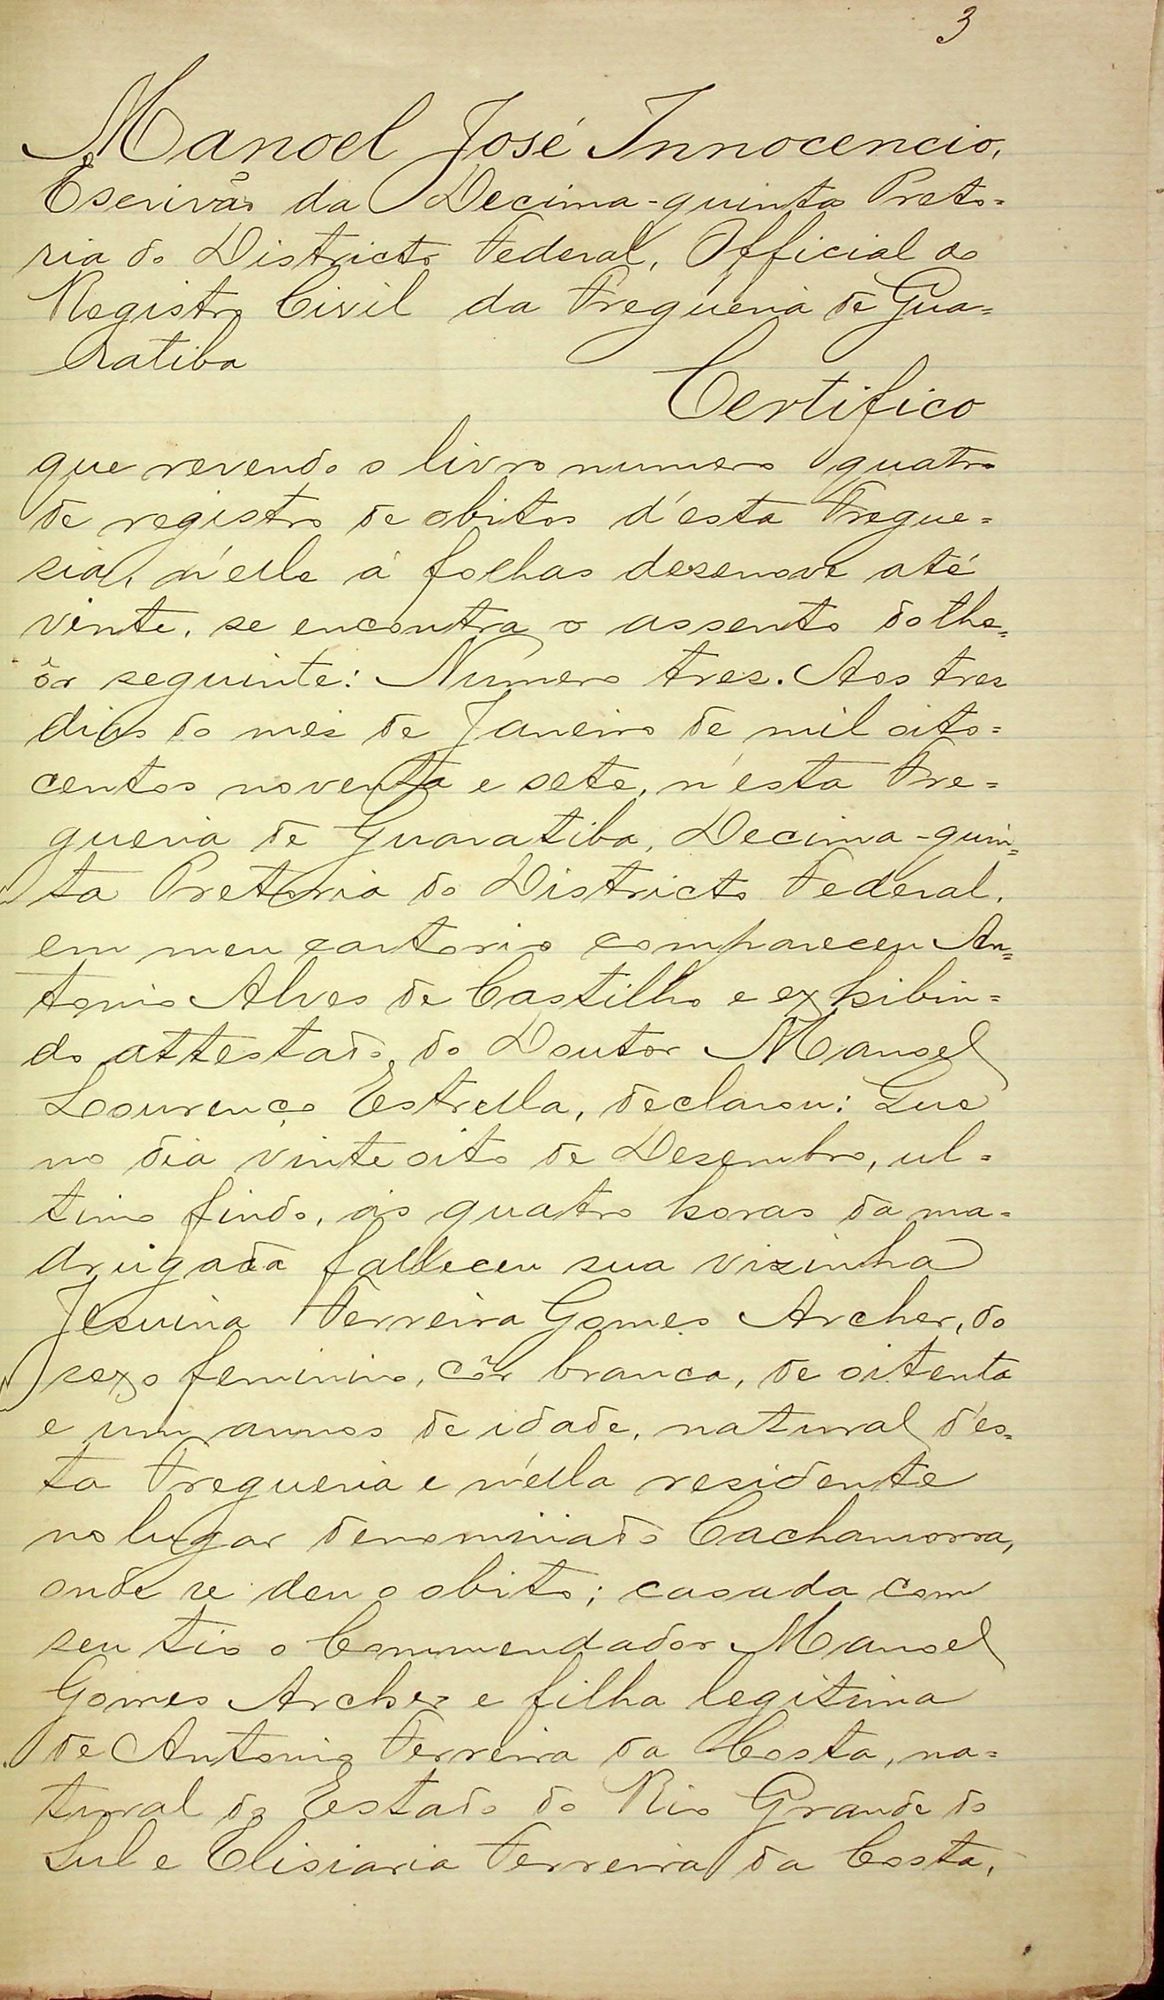 3
Manoel José Innocencio,
Escrivão da Decima-quinta Preto=
ria do Districto Federal, Official do
Registro Civil da Freguesia de Gua=
ratiba
Certifico
que revendo o livro numero quatro
de registro de obitos d'esta Fregue=
sia, n'elle á folhas desenove até
vinte, se encontra o assento do the=
ôr seguinte: Numero tres. Aos tres
dias do mes de Janeiro de mil oito=
centos noventa e sete, n'esta Fre=
guesia de Guaratiba, Decima-quin=
ta Pretoria do Districto Federal,
em meu cartorio compareceu An=
tonio Alves de Castilho e exhibin=
do attestado do Doutor Manoel
Lourenço Estrella, declarou: Que
no dia vinte oito de Desembro, ul=
timo findo, ás quatro horas da ma=
drugada falleceu sua visinha
Jesuina Ferreira Gomes Archer, do
sexo feminino, côr branca, de oitenta
e um annos de idade, natural d'es=
ta Freguesia e n'ella residente
no lugar denominado Cachamorra,
onde se deu o obito; casada com
seu tio o Commendador Manoel
Gomes Archer e filha legitima
de Antonio Ferreira da Costa, na=
tural do Estado do Rio Grande do
Sul e Elisiaria Ferreira da Costa,